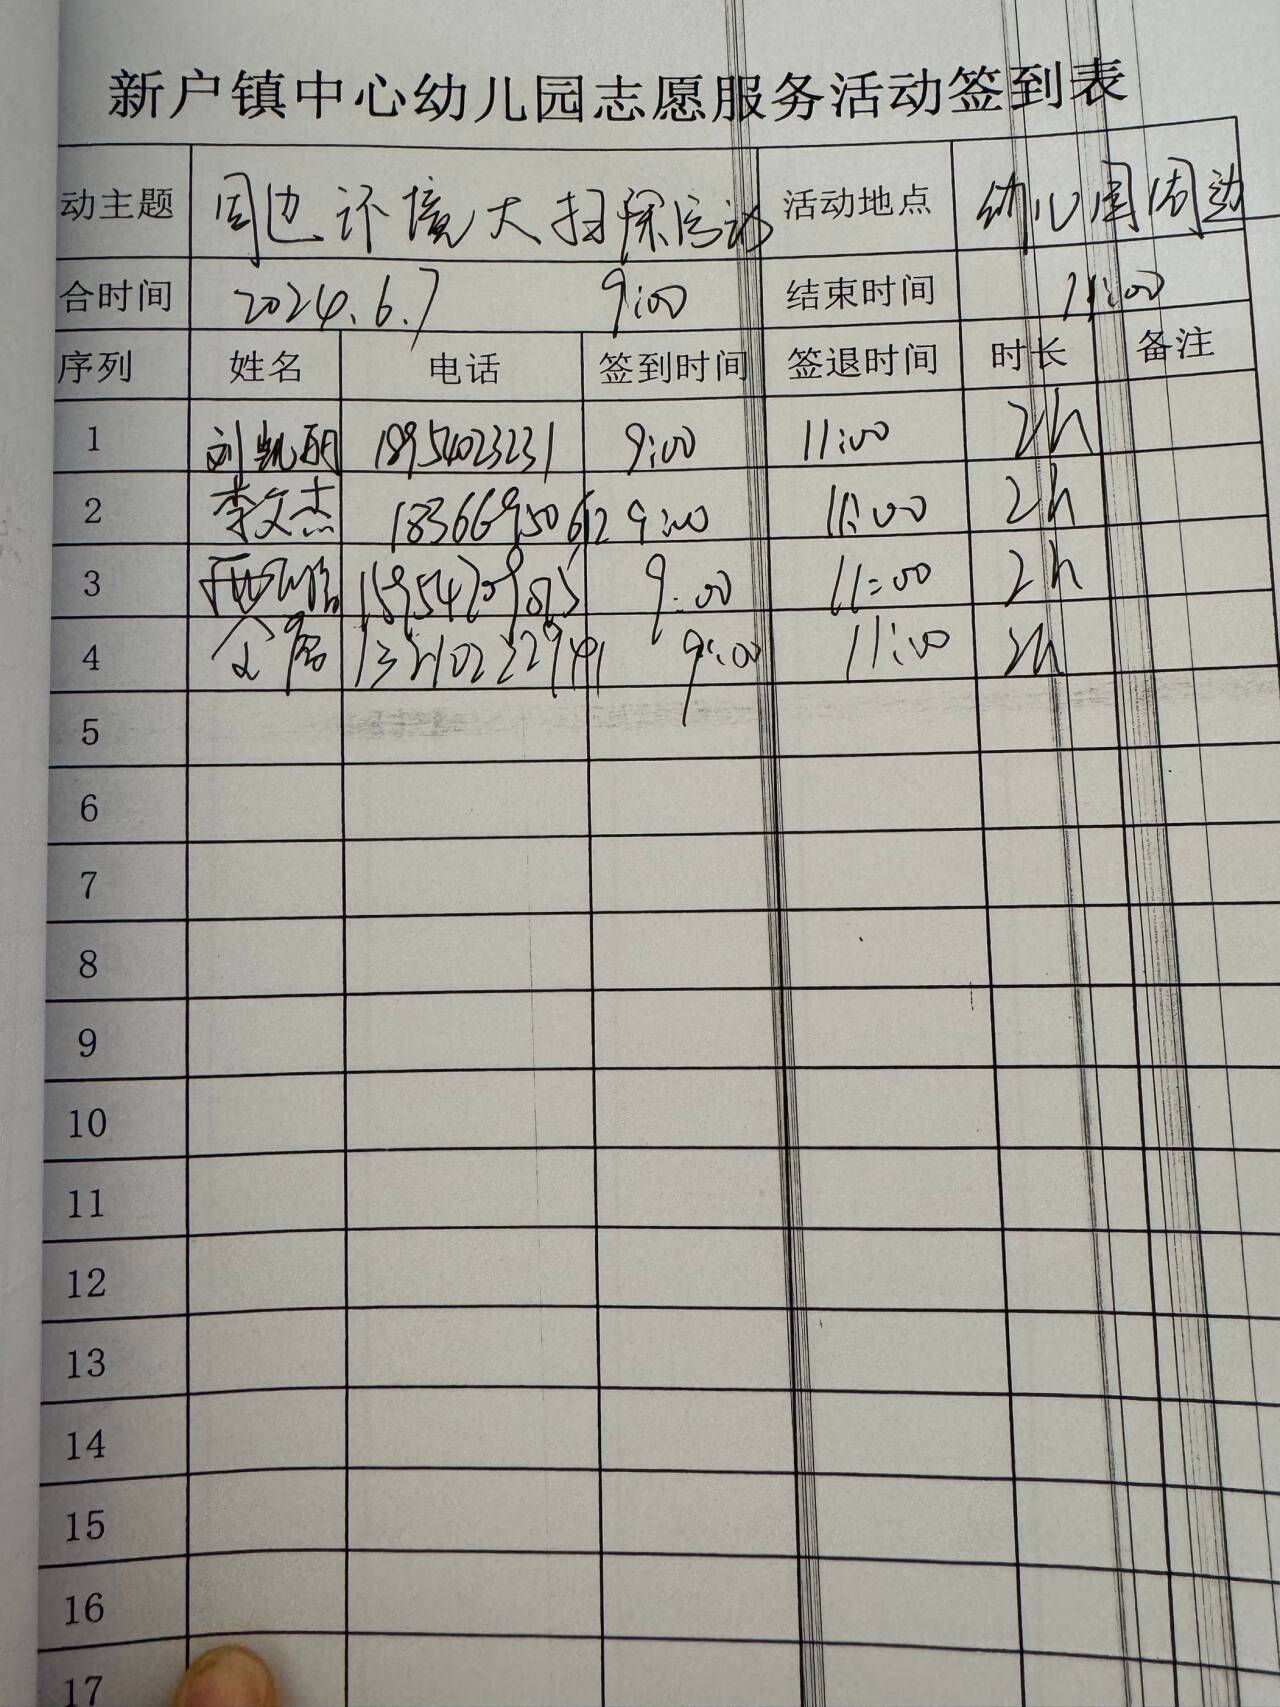 新户镇中心幼儿园志愿服务活动签到表
动主题 周边环境大扫除活动 活动地点 幼儿园周边
合时间 2024.6.7 9:00 结束时间 11:00
序列 姓名 电话 签到时间 签退时间 时长 备注
1 刘凯丽 18954023231 9:00 11:00 2h
2 李文杰 18366950612 9:00 11:00 2h
3 9:00 11:00 2h
4 9:00 11:00 2h
5
6
7
8
9
10
11
12
13
14
15
16
17